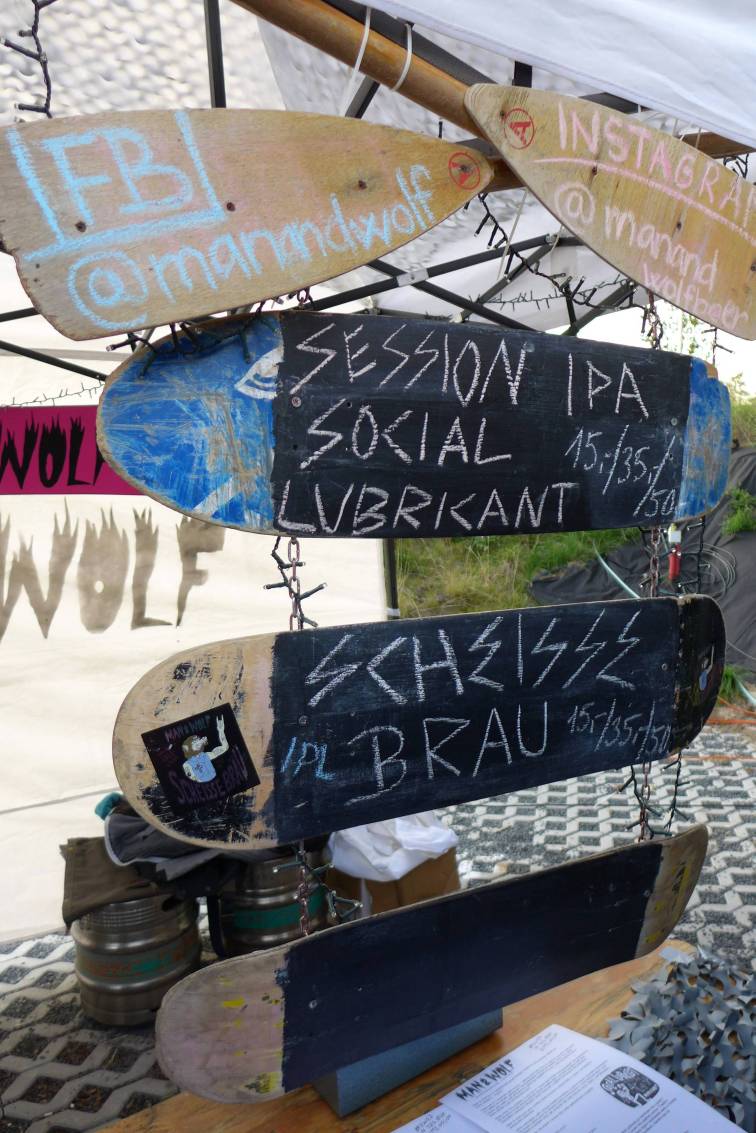 FB
@manandwolf
INSTAGRA
@manand
wolfbeer
SESSION IPA
SOCIAL
LUBRICANT
15,-/35,-/50
WOLF
WOLF
SCHEISSE
BRAU
IPL
15,-/35,-/50,
MAN & WOLF
SCHEISSE BRÄU
MAN & WOLF